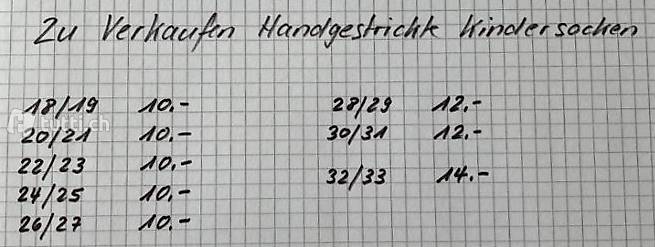 Zu Verkaufen Handgestrickte Kindersocken
18/19 10.- 28/29 12.-
tutti.ch
20/21 10.- 30/31 12.-
22/23 10.-
32/33 14.-
24/25 10.-
26/27 10.-